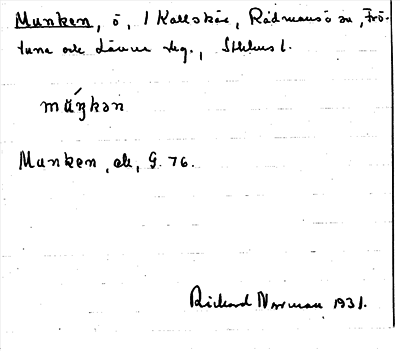 Munken, ö, 1 Kallskär, Rådmansö sn, Frö-
tuna och Länna skg., Sthlms l.
Munken, ek, G. 76.
Rickard Norrman 1931.